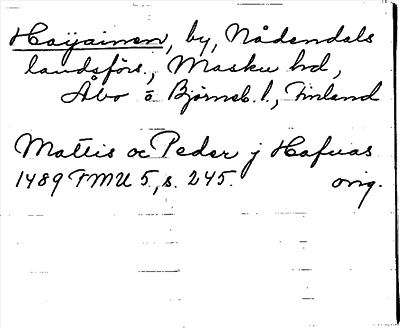 Haijainen, by, Nådendals
landsförs., Masku hd,
Åbo o Björneb. l., Finland
Mattis oc Peder j Hafuas
1489 FMU 5, s. 245. orig.